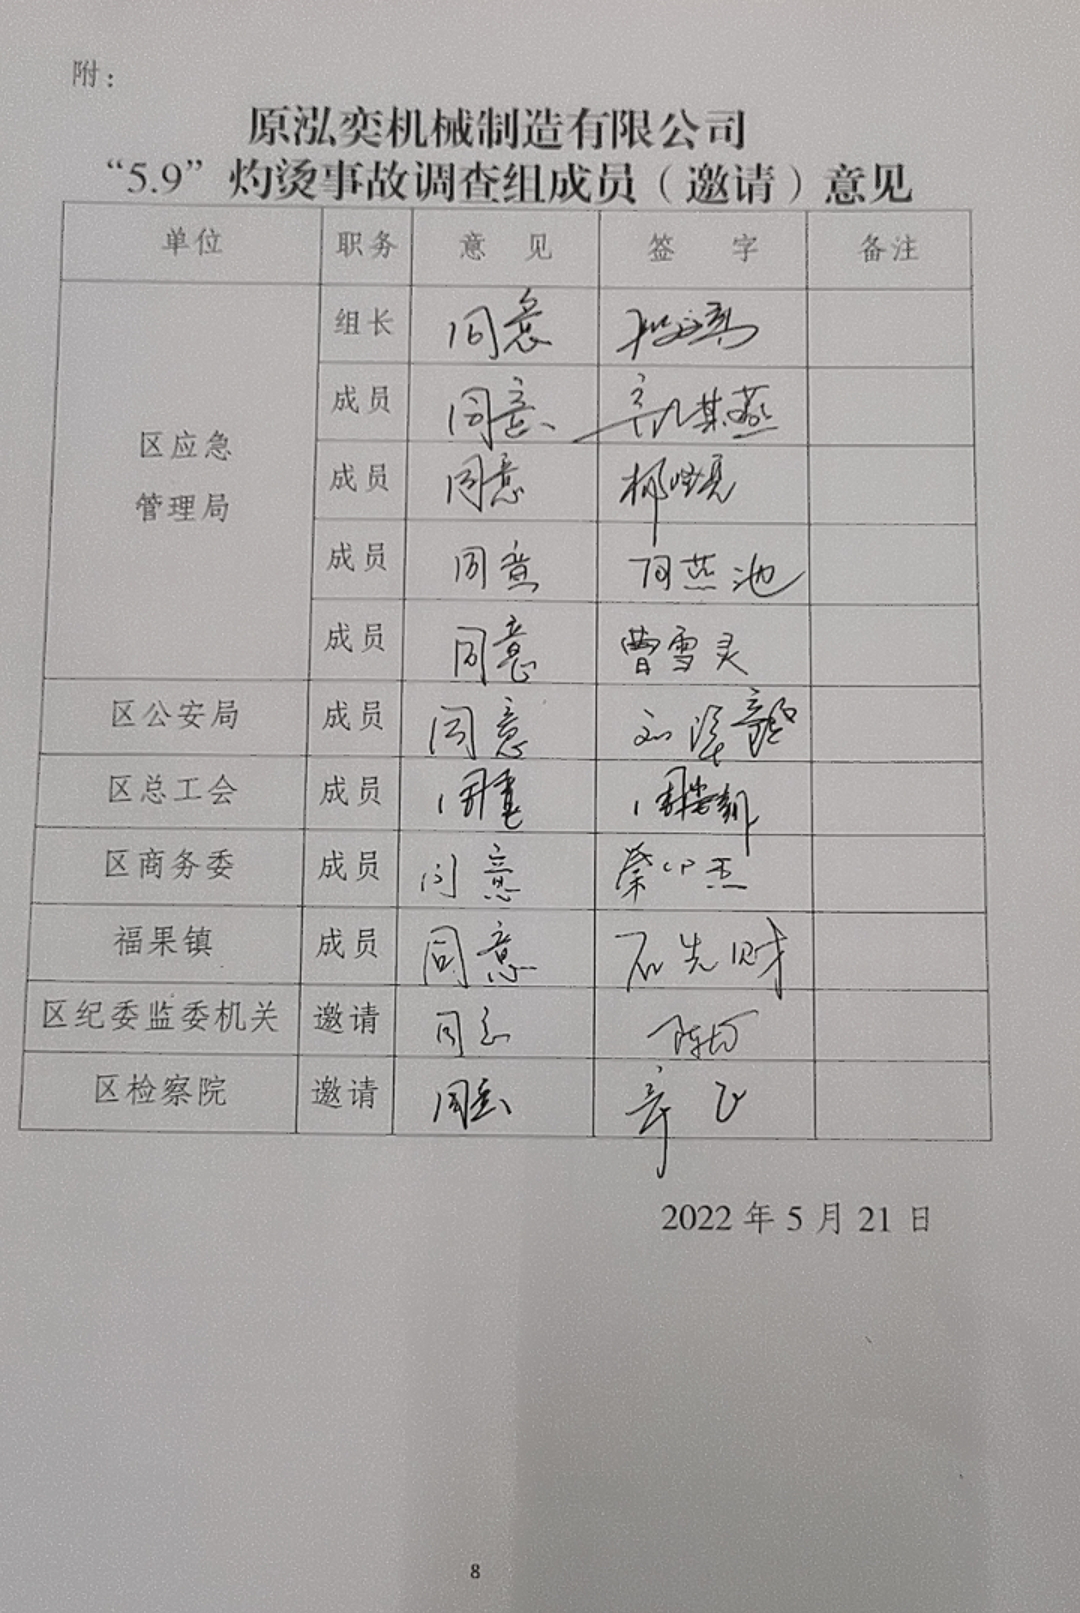 附：
原泓奕机械制造有限公司
“5.9”灼烫事故调查组成员（邀请）意见
单位 职务 意见 签字 备注
区应急
管理局
组长 同意
成员 同意
成员 同意
成员 同意
成员 同意 曹雪灵
区公安局 成员 同意
区总工会 成员 同意
区商务委 成员 同意
福果镇 成员 同意 石先财
区纪委监委机关 邀请 同意
区检察院 邀请 同意
2022年5月21日
8